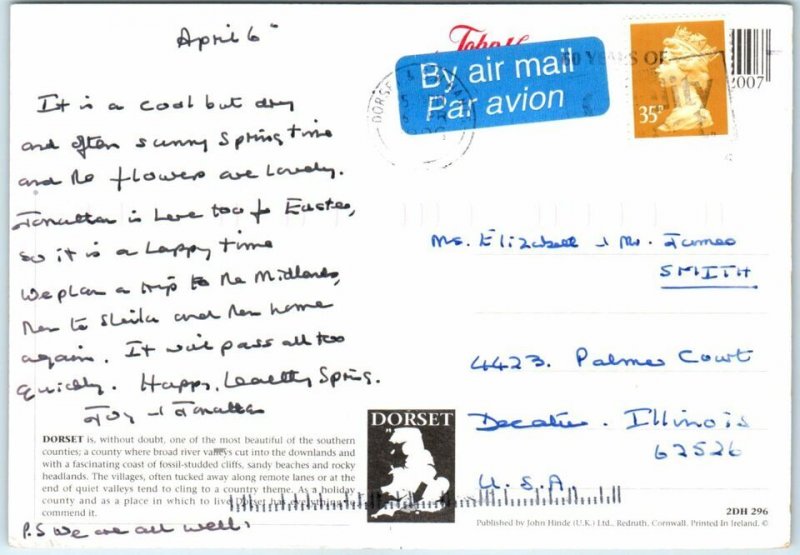 April 6
It is a cool but dry
and often sunny Spring time
and the flowers are lovely.
Jonathan is here too for Easter,
so it is a happy time
We plan a trip to the Midlands,
then to Sheila and then home
again. It will pass all too
quickly. Happy, healthy Spring.
Joy & Jonathan
By air mail
Par avion
50 YEARS OF
35P
2007
Ms. Elizabeth & Mr. James
SMITH
4423. Palmer Court
Decatur. Illinois
62526
U.S.A.
DORSET
DORSET is, without doubt, one of the most beautiful of the southern
counties; a county where broad river valleys cut into the downlands and
with a fascinating coast of fossil-studded cliffs, sandy beaches and rocky
headlands. The villages, often tucked away along remote lanes or at the
end of quiet valleys tend to cling to a country theme. As a holiday
county and as a place in which to live Dorset has everything to
commend it.
P.S We are all well.
2DH 296
Published by John Hinde (U.K.) Ltd., Redruth, Cornwall. Printed In Ireland. ©